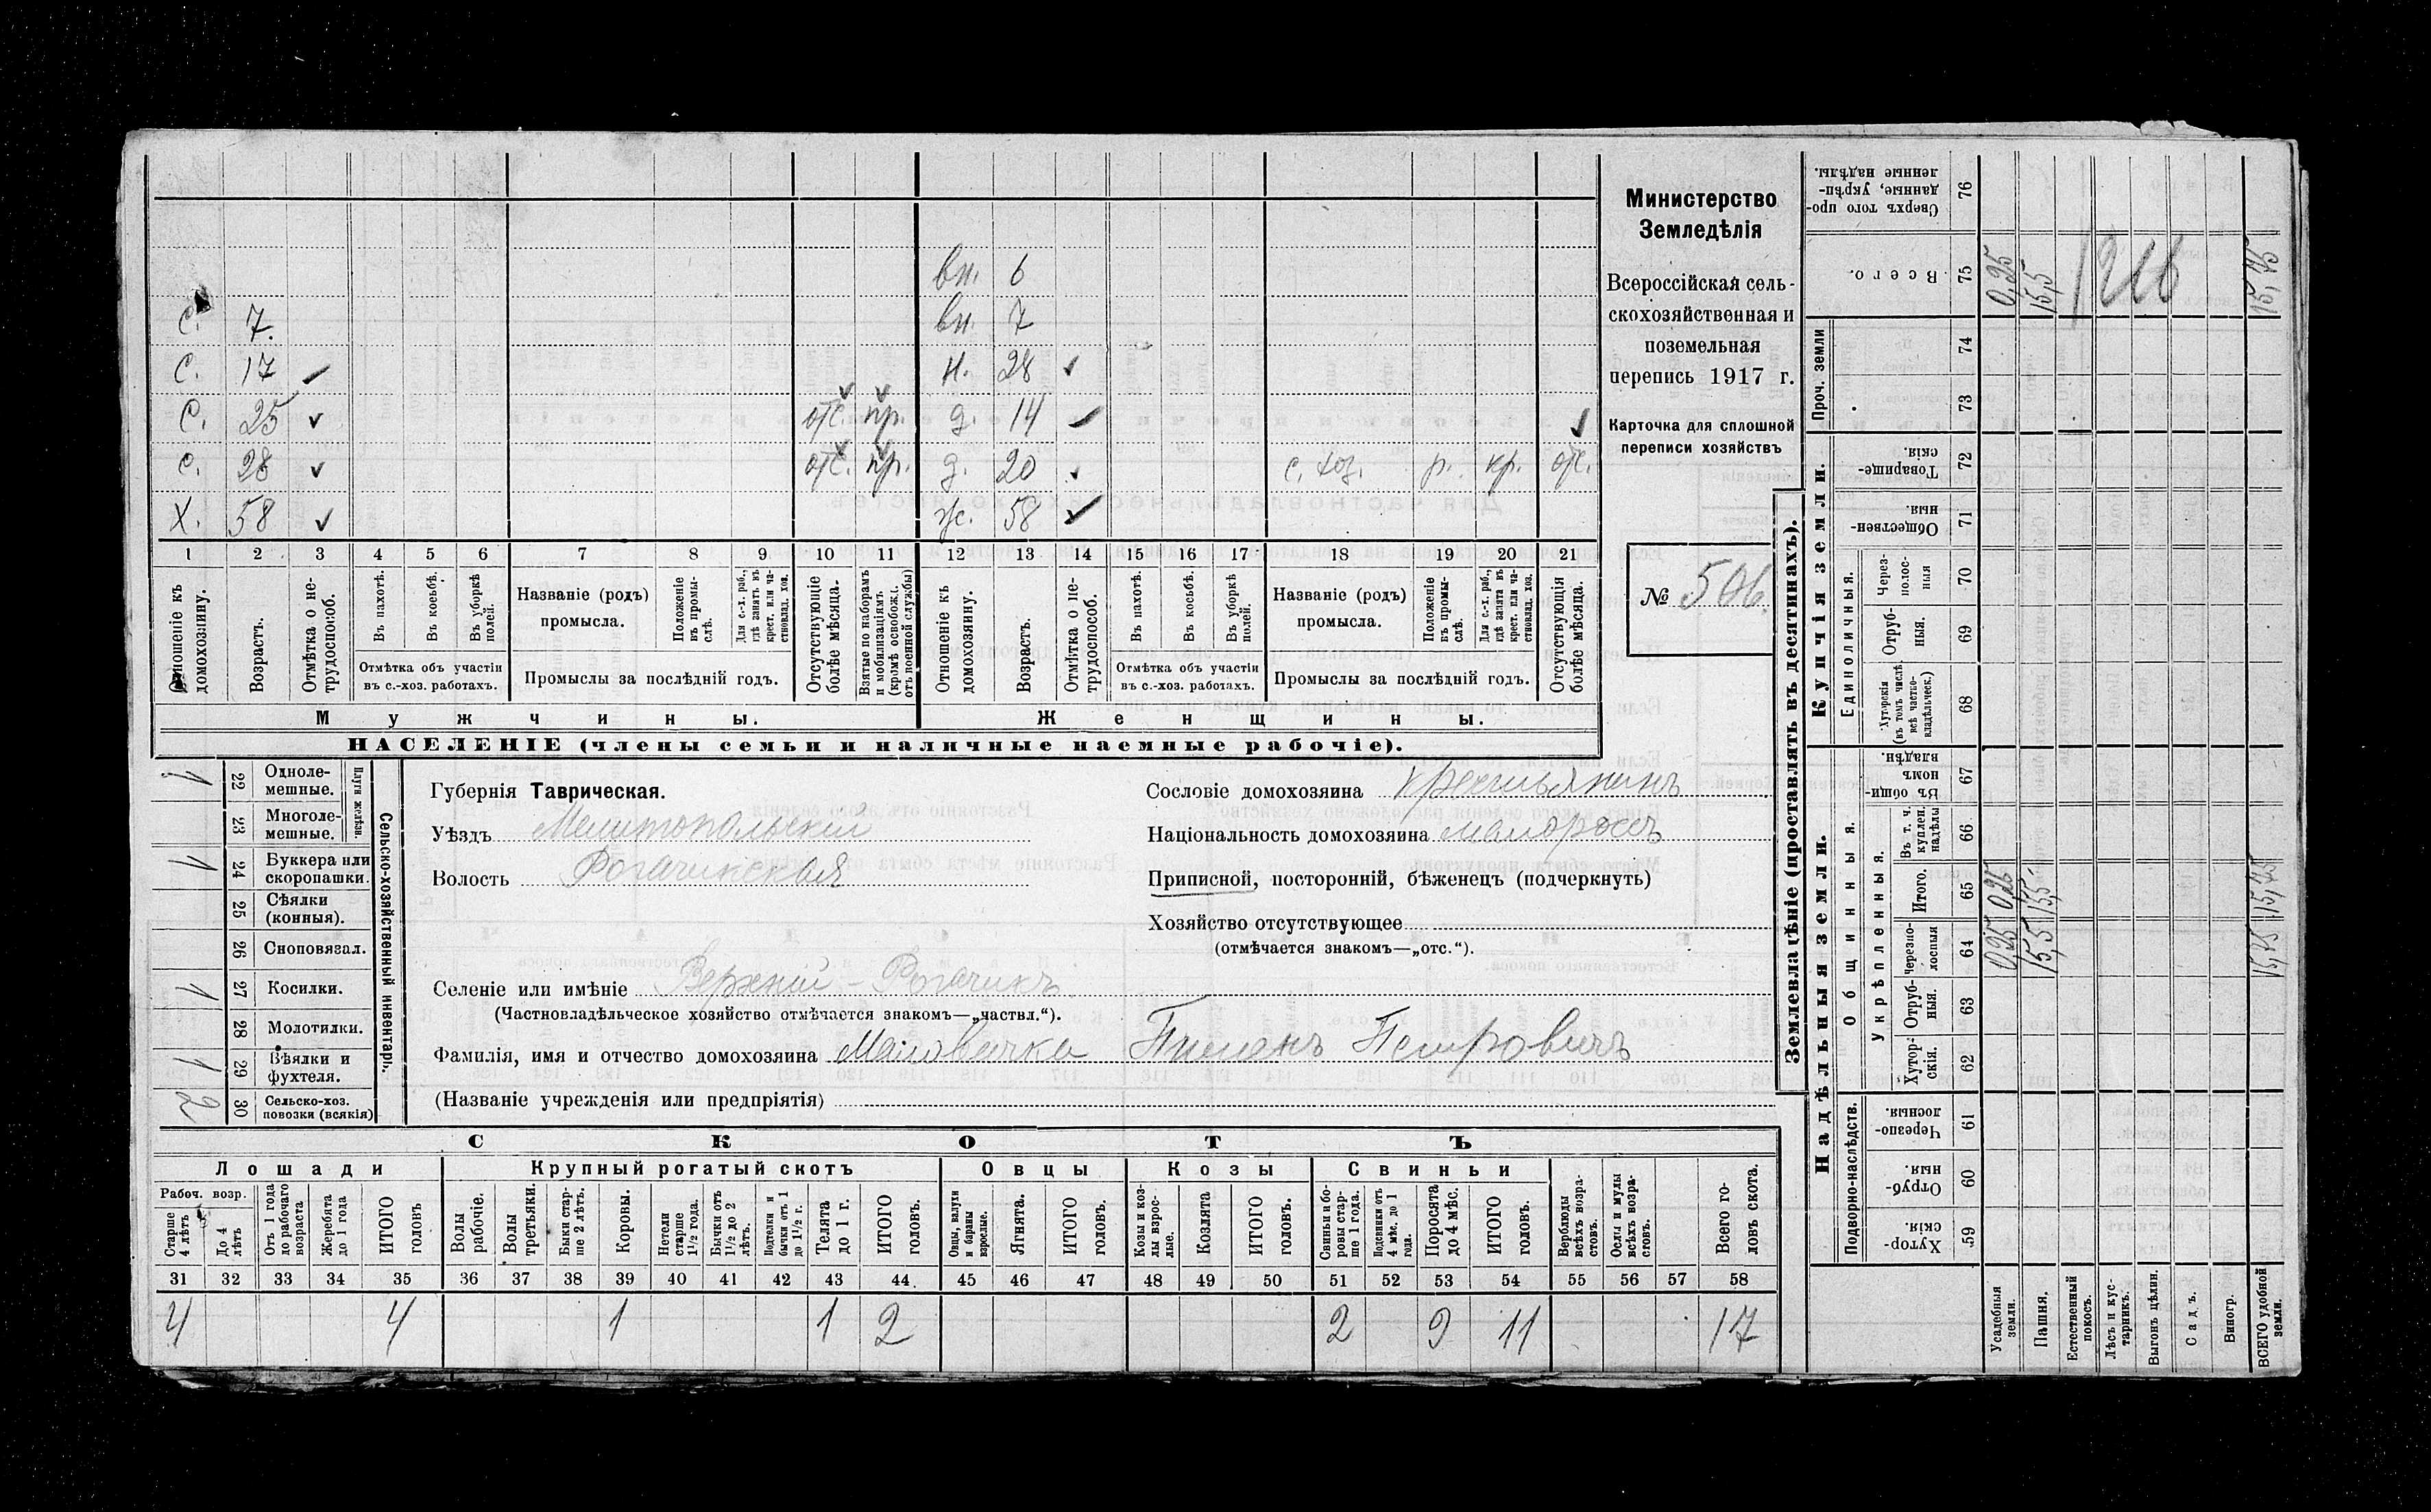 вн. 6
С. 7. вн. 7
С. 17 ✓ н. 28 ✓
С. 25 ✓ отс. пр. д. 14 ✓ ✓
с. 28 ✓ отс. пр. д. 20 ✓ с. хоз. р. кр. отс.
Х. 58 ✓ ж. 58 ✓
1 2 3 4 5 6 7 8 9 10 11 12 13 14 15 16 17 18 19 20 21
Отношеніе къ домохозяину.
Возрастъ.
Отмѣтка о нетрудоспособ.
Въ пахотѣ.
Въ косьбѣ.
Въ уборкѣ полей.
Отмѣтка объ участіи въ с.-хоз. работахъ.
Названіе (родъ) промысла.
Положеніе въ промыслѣ.
Для с.-х. раб., гдѣ занятъ въ крест. или частновлад. хоз.
Промыслы за послѣдній годъ.
Отсутствующіе болѣе мѣсяца.
Взятые по наборамъ и мобилизаціямъ (кромѣ освобожд. отъ военной службы)
Отношеніе къ домохозяину.
Возрастъ.
Отмѣтка о нетрудоспособ.
Въ пахотѣ.
Въ косьбѣ.
Въ уборкѣ полей.
Отмѣтка объ участіи въ с.-хоз. работахъ.
Названіе (родъ) промысла.
Положеніе въ промыслѣ.
Для с.-х. раб., гдѣ занята въ крест. или частновлад. хоз.
Промыслы за послѣдній годъ.
Отсутствующія болѣе мѣсяца.
Мужчины. Женщины.
НАСЕЛЕНІЕ (члены семьи и наличные наемные рабочіе).
Министерство
Земледѣлія
Всероссійская сель-
скохозяйственная и
поземельная
перепись 1917 г.
Карточка для сплошной
переписи хозяйствъ
№ 506.
Сельско-хозяйственный инвентарь.
Плуги желѣзн.
1 22 Однолемешные.
23 Многолемешные.
1 24 Буккера или скоропашки.
25 Сѣялки (конныя).
26 Сноповязал.
1 27 Косилки.
28 Молотилки.
1 29 Вѣялки и фухтеля.
2 30 Сельско-хоз. повозки (всякія)
Губернія Таврическая.
Уѣздъ Мелитопольскій
Волость Рогачикская
Сословіе домохозяина крестьянинъ
Національность домохозяина малороссъ
Приписной, посторонній, бѣженецъ (подчеркнуть)
Хозяйство отсутствующее
(отмѣчается знакомъ—„отс.“).
Селеніе или имѣніе Верхній-Рогачикъ
(Частновладѣльческое хозяйство отмѣчается знакомъ—„частвл.“).
Фамилія, имя и отчество домохозяина Маловичко Пименъ Петровичъ
(Названіе учрежденія или предпріятія)
СКОТЪ
Лошади Крупный рогатый скотъ Овцы Козы Свиньи
Рабоч. возр.
Старше 4 лѣтъ
До 4 лѣтъ
Отъ 1 года до рабочаго возраста
Жеребята до 1 года
ИТОГО головъ
Волы рабочіе.
Волы третьяки.
Быки старше 2 лѣтъ.
Коровы.
Нетели старше 1½ года.
Бычки отъ 1½ до 2 лѣтъ.
Подтелки и бычки отъ 1 до 1½ г.
Телята до 1 г.
ИТОГО головъ.
Овцы, валухи и бараны взрослые.
Ягнята.
ИТОГО головъ.
Козы и козлы взрослые.
Козлята
ИТОГО головъ.
Свиньи и боровы старше 1 года.
Подсвинки отъ 4 мѣс. до 1 года.
Поросята до 4 мѣс.
ИТОГО головъ.
Верблюды всѣхъ возрастовъ.
Ослы и мулы всѣхъ возрастовъ.
Всего головъ скота.
31 32 33 34 35 36 37 38 39 40 41 42 43 44 45 46 47 48 49 50 51 52 53 54 55 56 57 58
4 4 1 1 2 2 9 11 17
Землевладѣніе (проставлять въ десятинахъ).
Надѣльныя земли. Купчія земли. Проч. земли
Подворно-наслѣдств.
Общинныя.
Укрѣпленныя.
Единоличныя.
Хуторскія. 59
Отрубныя. 60
Черезполосныя. 61
Хуторскія. 62
Отрубныя. 63
Черезполосныя 64
Итого. 65
Въ т. ч. куплен. надѣлы 66
Въ общинномъ владѣн. 67
Хуторскія (въ томъ числѣ всѣ частновладѣльческ.) 68
Отрубныя. 69
Черезполосныя 70
Общественныя. 71
Товарищескія. 72
73
74
Всего. 75
Сверхъ того проданные, укрѣпленные надѣлы. 76
Усадебныя земли. 0,25 0,25 0,25
Пашня. 15,5 15,5 15,5
Естественный покосъ.
Лѣсъ и кустарникъ.
Выгонъ цѣлин.
Садъ.
Виногр.
ВСЕГО удобной земли. 15,75 15,75 15,75